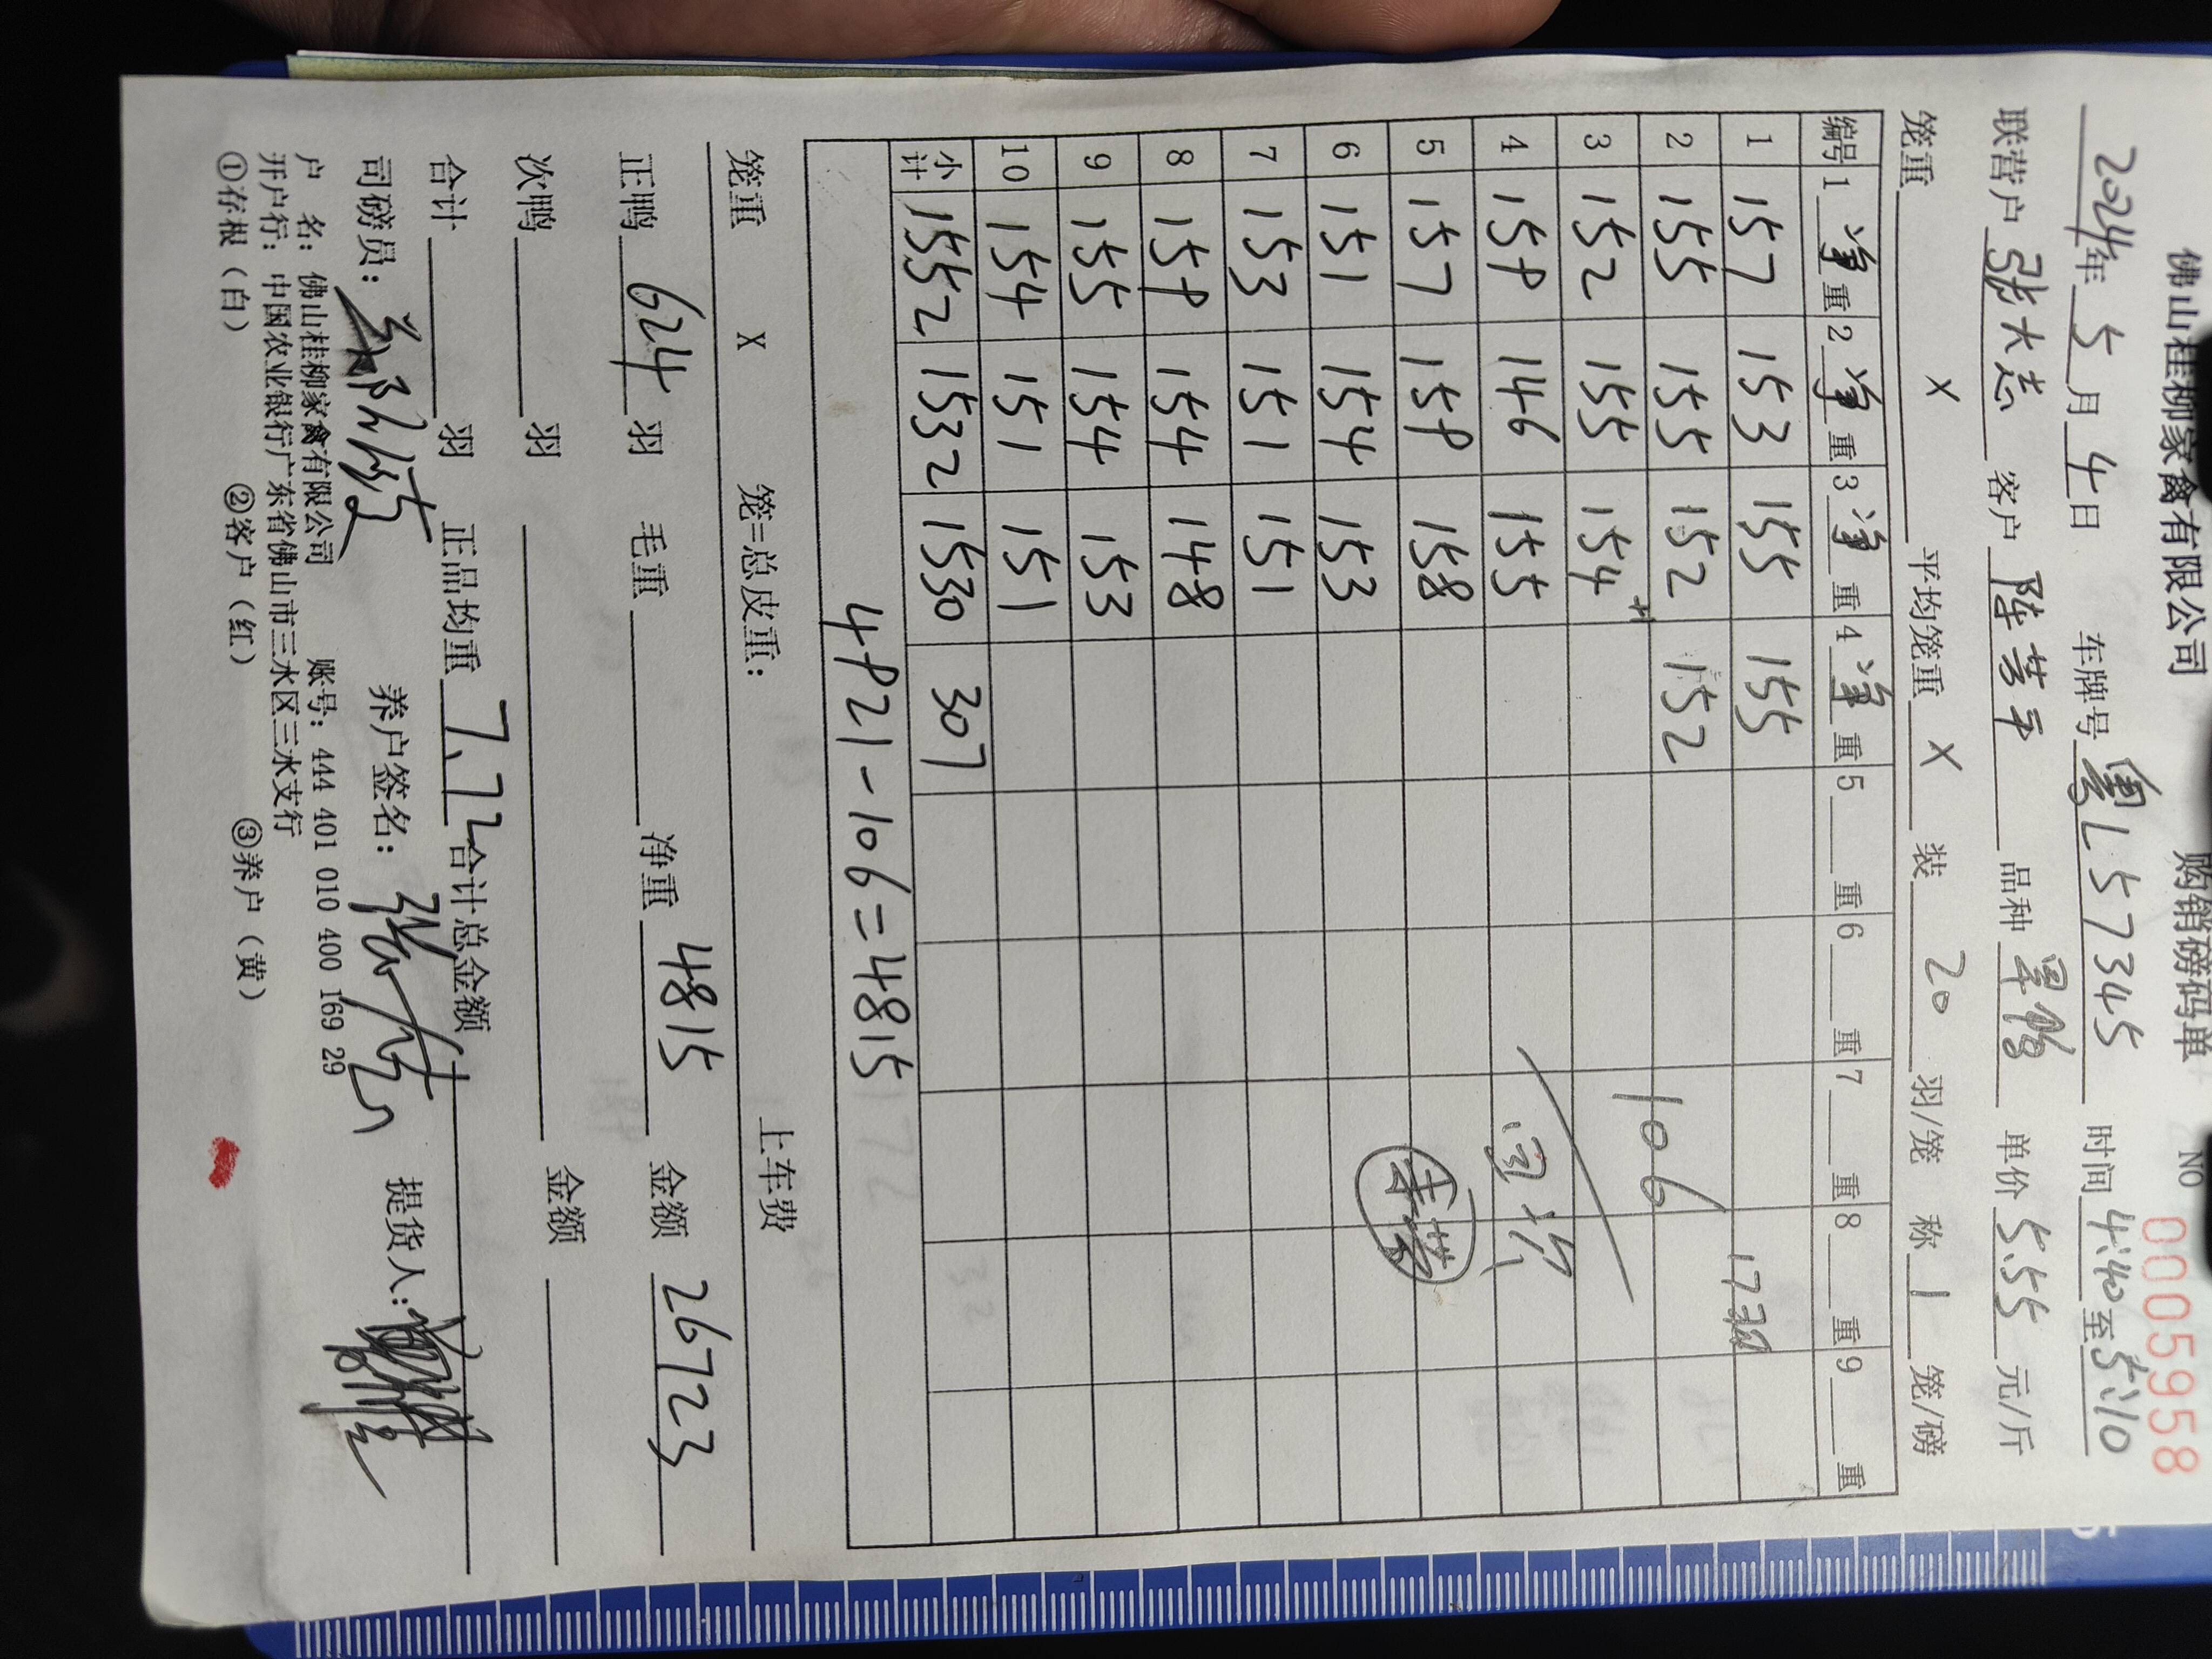 佛山桂柳家禽有限公司 购销磅码单 NO 00059958
2024年5月4日 车牌号 粤L57345 时间 4:40至5:10
联营户 张大志 客户 品种 旱鸭 单价 5.55 元/斤
笼重 X 平均笼重 X 装 20 羽/笼 称 1 笼/磅
编号 1 净 重 2 净 重 3 净 重 4 净 重 5 重 6 重 7 重 8 重 9 重
1 157 153 155 155
2 155 155 152 152 106
3 152 155 154
4 159 146 155
5 157 159 158
6 151 154 153
7 153 151 151
8 159 154 148
9 155 154 153
10 154 151 151
小计 1552 1532 1530 307
4921-106=4815
笼重 X 笼=总皮重: 上车费
正鸭 624 羽 毛重 净重 4815 金额 26723
次鸭 羽 金额
合计 羽 正品均重 7.72 合计总金额
司磅员: 养户签名: 张大志 提货人:
户 名: 佛山桂柳家禽有限公司 账号: 444 401 010 400 169 29
开户行: 中国农业银行广东省佛山市三水区三水支行
①存根(白) ②客户(红) ③养户(黄)